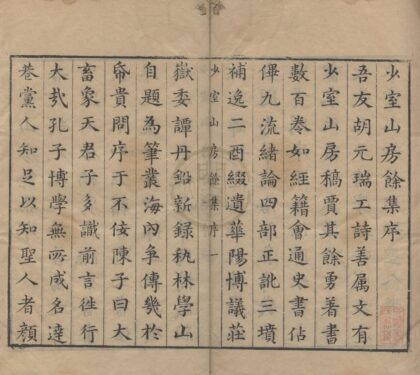 少室山房餘集序
吾友胡元瑞工詩善属文有
少室山房稿賈其餘勇著書
數百卷如經籍會通史書佔
僤九流緒論四部正訛三墳
補逸二酉綴遺華陽博議莊
少室山房餘集序 一
嶽委譚丹鉛新錄秇林學山
自題為筆叢海內爭傳幾於
帋貴問序于不佞陳子曰大
畜象天君子多識前言徃行
大㢤孔子博學無所成名達
巷黨人知足以知聖人者顏